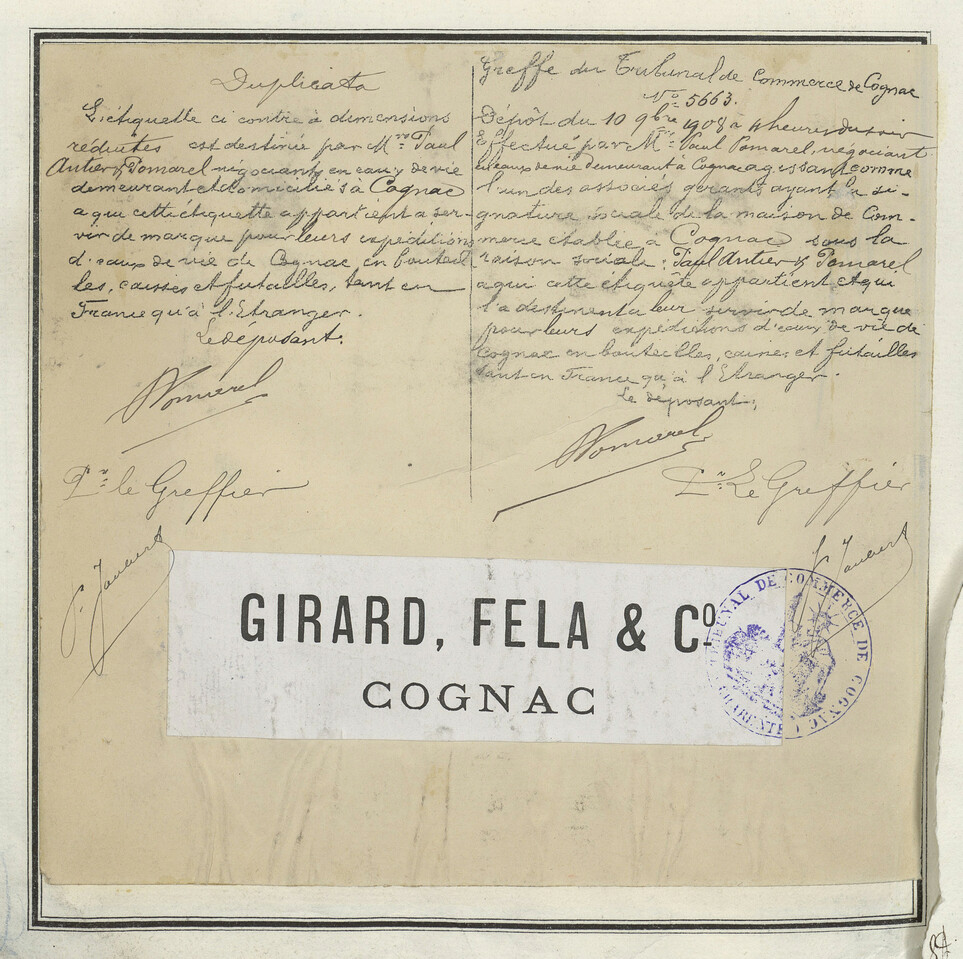 Duplicata
L'étiquette ci contre à dimensions
réduites est destinée par Mrs Paul
Antier & Pomarel négociants en eaux de vie
demeurant et domiciliés à Cognac
a qui cette étiquette appartient a ser-
vir de marque pour leurs expéditions
d'eaux de vie de Cognac en bouteil
les, caisses et futailles, tant en
France qu'à l'Etranger.
Le déposant.
Pomarel
Pr le Greffier
Greffe du Tribunal de Commerce de Cognac
No 5663.
Dépôt du 10 9bre 1908 a 4 heures du soir
Effectué par Mr Paul Pomarel, négociant
en eaux de vie demeurant à Cognac agissant comme
l'un des associés gérants ayant la si-
gnature sociale de la maison de Com-
merce établie a Cognac sous la
raison sociale: Paul Antier & Pomarel
a qui cette étiquette appartient et qui
la destinent a leur servir de marque
pour leurs expéditions d'eaux de vie de
Cognac en bouteilles, caisses et futailles
tant en France qu'à l'Etranger.
Le déposant,
Pomarel
Pr Le Greffier
GIRARD, FELA & Co.
COGNAC
TRIBUNAL DE COMMERCE DE COGNAC
CHARENTE